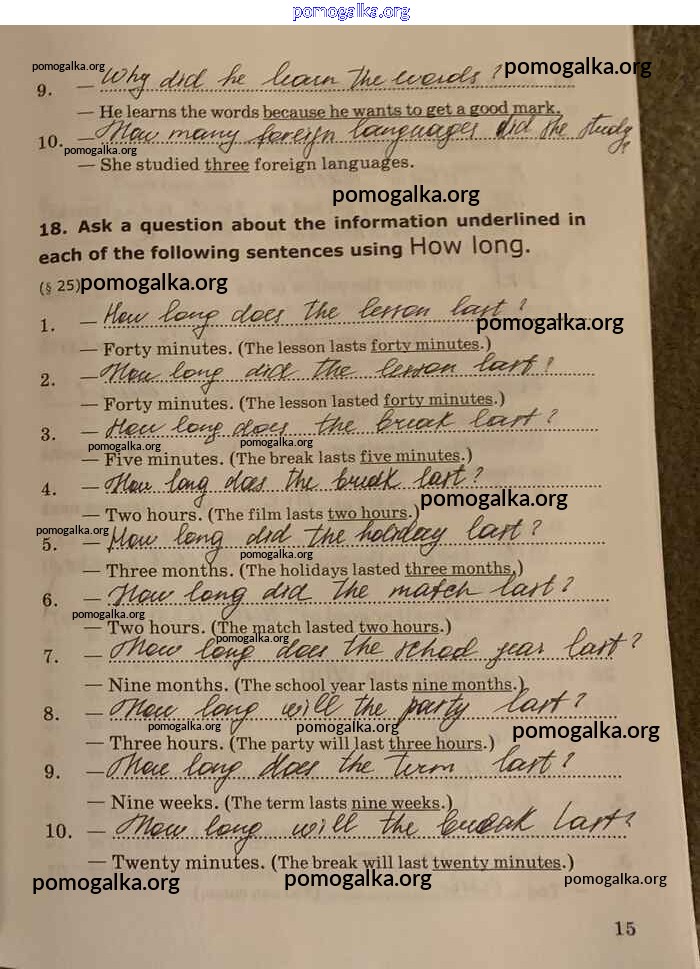 pomogalka.org
pomogalka.org
9. — Why did he learn the words? pomogalka.org
— He learns the words because he wants to get a good mark.
10. — How many foreign languages did she study
pomogalka.org
— She studied three foreign languages.
pomogalka.org
18. Ask a question about the information underlined in
each of the following sentences using How long.
(§ 25) pomogalka.org
1. — How long does the lesson last?
pomogalka.org
— Forty minutes. (The lesson lasts forty minutes.)
2. — How long did the lesson last?
— Forty minutes. (The lesson lasted forty minutes.)
3. — How long does the break last?
pomogalka.org pomogalka.org
— Five minutes. (The break lasts five minutes.)
4. — How long does the break last?
pomogalka.org
— Two hours. (The film lasts two hours.)
pomogalka.org
5. — How long did the holiday last?
pomogalka.org
— Three months. (The holidays lasted three months.)
6. — How long did the match last?
pomogalka.org
— Two hours. (The match lasted two hours.)
pomogalka.org
7. — How long does the school year last?
— Nine months. (The school year lasts nine months.)
8. — How long will the party last?
pomogalka.org pomogalka.org pomogalka.org
— Three hours. (The party will last three hours.)
9. — How long does the term last?
— Nine weeks. (The term lasts nine weeks.)
10. — How long will the break last?
— Twenty minutes. (The break will last twenty minutes.)
pomogalka.org pomogalka.org pomogalka.org
15